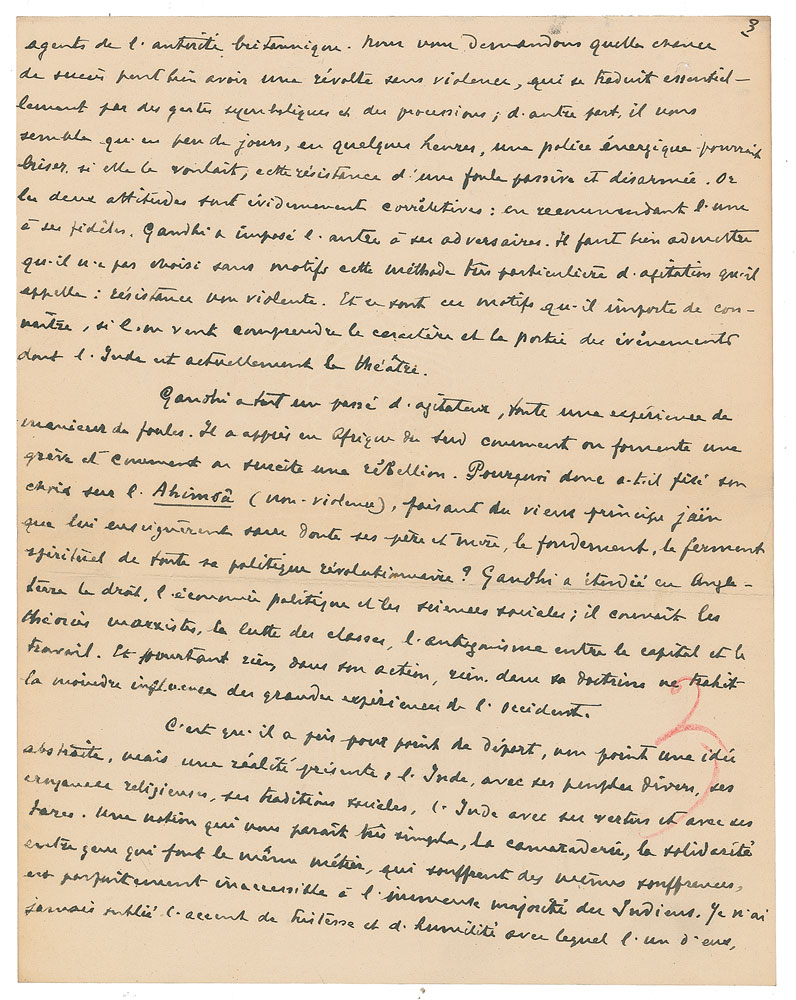 3
agents de l'autorité britannique. Nous nous demandons quelle chance
de succès peut bien avoir une révolte sans violence, qui se traduit essentiel-
lement par des gestes symboliques et des processions ; d'autre part, il nous
semble qu'en peu de jours, en quelques heures, une police énergique pourrait
briser, si elle le voulait, cette résistance d'une foule passive et désarmée. Or
les deux attitudes sont évidemment corrélatives : en recommandant l'une
à ses fidèles, Gandhi a imposé l'autre à ses adversaires. Il faut bien admettre
qu'il n'a pas choisi sans motifs cette méthode très particulière d'agitation qu'il
appelle : résistance non violente. Et ce sont ces motifs qu'il importe de con-
naître, si l'on veut comprendre le caractère et la portée des événements
dont l'Inde est actuellement le théâtre.
Gandhi a tout un passé d'agitateur, toute une expérience de
manieur de foules. Il a appris en Afrique du Sud comment on fomente une
grève et comment on suscite une rébellion. Pourquoi donc a-t-il fixé son
choix sur l'Ahimsâ (non-violence), faisant du vieux principe jaïn
que lui enseignèrent sans doute ses père et mère, le fondement, le ferment
spirituel de toute sa politique révolutionnaire ? Gandhi a étudié en Angle-
terre le droit, l'économie politique et les sciences sociales ; il connaît les
théories marxistes, la lutte des classes, l'antagonisme entre le capital et le
travail. Et pourtant rien, dans son action, rien dans sa doctrine ne trahit
la moindre influence des grandes expériences de l'Occident.
C'est qu'il a pris pour point de départ, non point une idée
abstraite, mais une réalité présente : l'Inde, avec ses peuples divers, ses
croyances religieuses, ses traditions sociales, l'Inde avec ses vertus et avec ses
tares. Une notion qui nous paraît très simple, la camaraderie, la solidarité
entre gens qui font le même métier, qui souffrent des mêmes souffrances,
est parfaitement inaccessible à l'immense majorité des Indiens. Je n'ai
jamais oublié l'accent de tristesse et d'humilité avec lequel l'un d'eux,
3